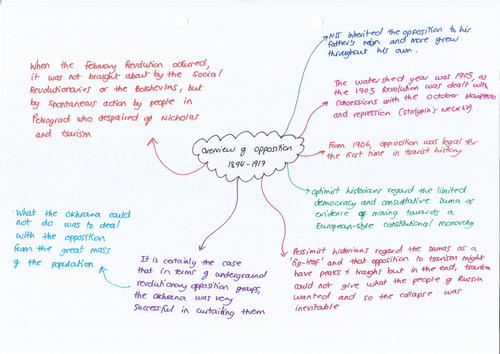 NII inherited the opposition to his
father's reign and more grew
throughout his own.
When the February Revolution occurred,
it was not brought about by the Social
Revolutionaries or the Bolsheviks, but
by spontaneous action by people in
Petrograd who despaired of Nicholas
and tsarism
The watershed year was 1905, as
the 1905 Revolution was dealt with
concessions with the October Manifesto
and repression (Stolypin's Necktie)
overview of opposition
1894-1917
From 1906, opposition was legal for
the first time in tsarist history
optimist historians regard the limited
democracy and consultative Duma as
evidence of moving towards a
European-style constitutional monarchy
What the okhrana could
not do was to deal
with the opposition
from the great mass
of the population
It is certainly the case
that in terms of underground
revolutionary opposition groups,
the okhrana was very
successful in curtailing them
Pessimist historians regard the Dumas as a
'fig-leaf' and that opposition to tsarism might
have peaks + troughs but in the end, tsarism
could not give what the people of Russia
wanted and so the collapse was
inevitable